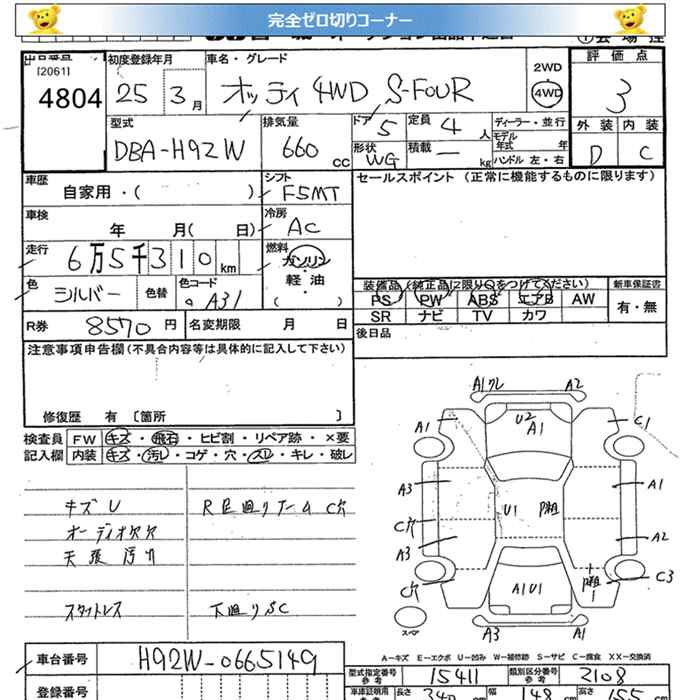 完全ゼロ切りコーナー
出品番号
[2061]
4804
初度登録年月
25 3月
車名・グレード
オッティ 4WD S-FOUR
2WD
4WD
評価点
3
外装 内装
D C
型式
DBA-H92W
排気量
660 cc
ドア 5
定員 4 人
ディーラー・並行
モデル年式 年
形状 WG
積載 ー kg
ハンドル 左・右
車歴
自家用・( )
シフト
F5MT
セールスポイント (正常に機能するものに限ります)
車検
年 月( 日)
冷房
AC
走行
6万5千310km
燃料
ガソリン・軽油・( )
色
シルバー
色替
色コード
A31
装備品(純正品に限り○をつけてください)
新車保証書
PS PW ABS エアB AW
有・無
SR ナビ TV カワ
R券 8570円
名変期限 月 日
後日品
注意事項申告欄(不具合内容等は具体的に記入して下さい)
修復歴 有 [箇所 ]
検査員記入欄
FW キズ・飛石・ヒビ割・リペア跡・×要
内装 キズ・汚れ・コゲ・穴・スレ・キレ・破レ
キズ U
オーディオ欠
天張 汚れ
スタットレス
下廻りSC
A1 A2
A1 U2 A1 C1
A3 A1
C穴 U1
A3 A2
C穴 A1U1 C3
スペア A3 A1
A-キズ E-エクボ U-凹み W-補修跡 S-サビ C-腐食 XX-交換済
車台番号 H92W-0665149
登録番号
型式指定番号 参考 15411
類別区分番号 参考 2108
車庫証明用 参考 長さ 幅 148 高さ